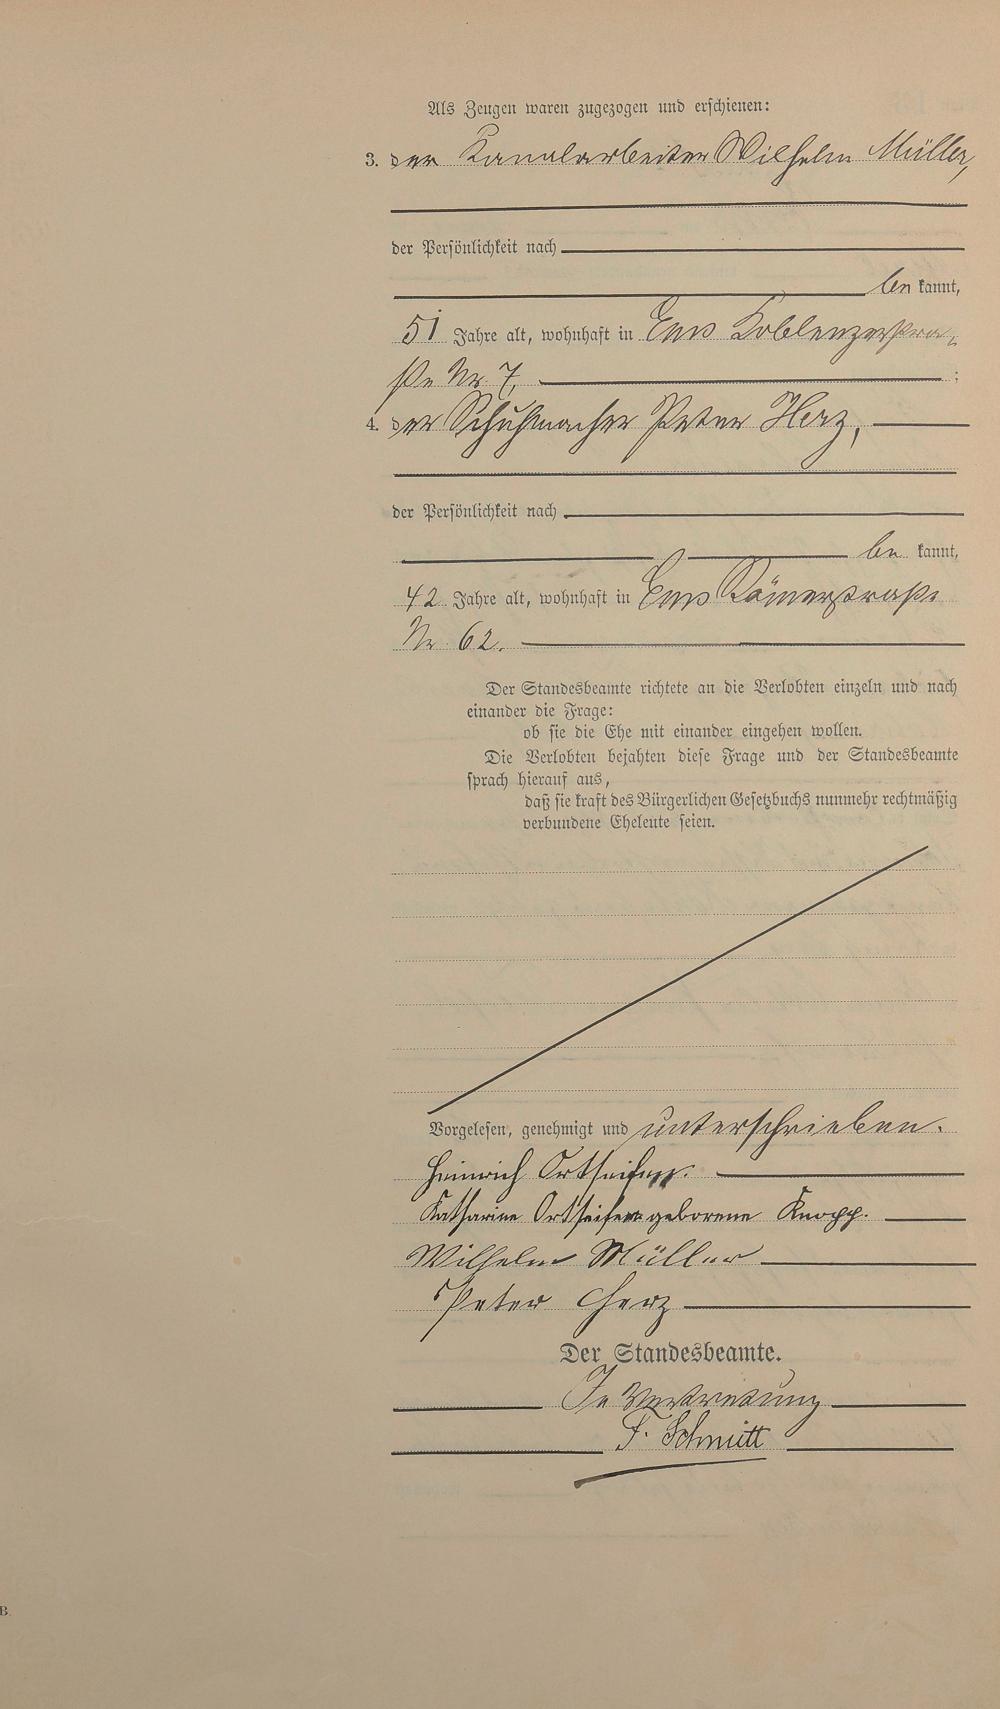 Als Zeugen waren zugezogen und erschienen:
3. der Kanalarbeiter Wilhelm Müller,
der Persönlichkeit nach
be kannt,
51 Jahre alt, wohnhaft in Ems Koblenzerstra-
ße Nr 7, ;
4. der Schuhmacher Peter Herz,
der Persönlichkeit nach
be kannt,
42 Jahre alt, wohnhaft in Ems Römerstraße
Nr 62.
Der Standesbeamte richtete an die Verlobten einzeln und nach
einander die Frage:
ob sie die Ehe mit einander eingehen wollen.
Die Verlobten bejahten diese Frage und der Standesbeamte
sprach hierauf aus,
daß sie kraft des Bürgerlichen Gesetzbuchs nunmehr rechtmäßig
verbundene Eheleute seien.
Vorgelesen, genehmigt und unterschrieben.
Heinrich Ortseifen.
Katharine Ortseifen geborene Knopp.
Wilhelm Müller
Peter Herz
Der Standesbeamte.
In Vertretung
F. Schmitt
B.